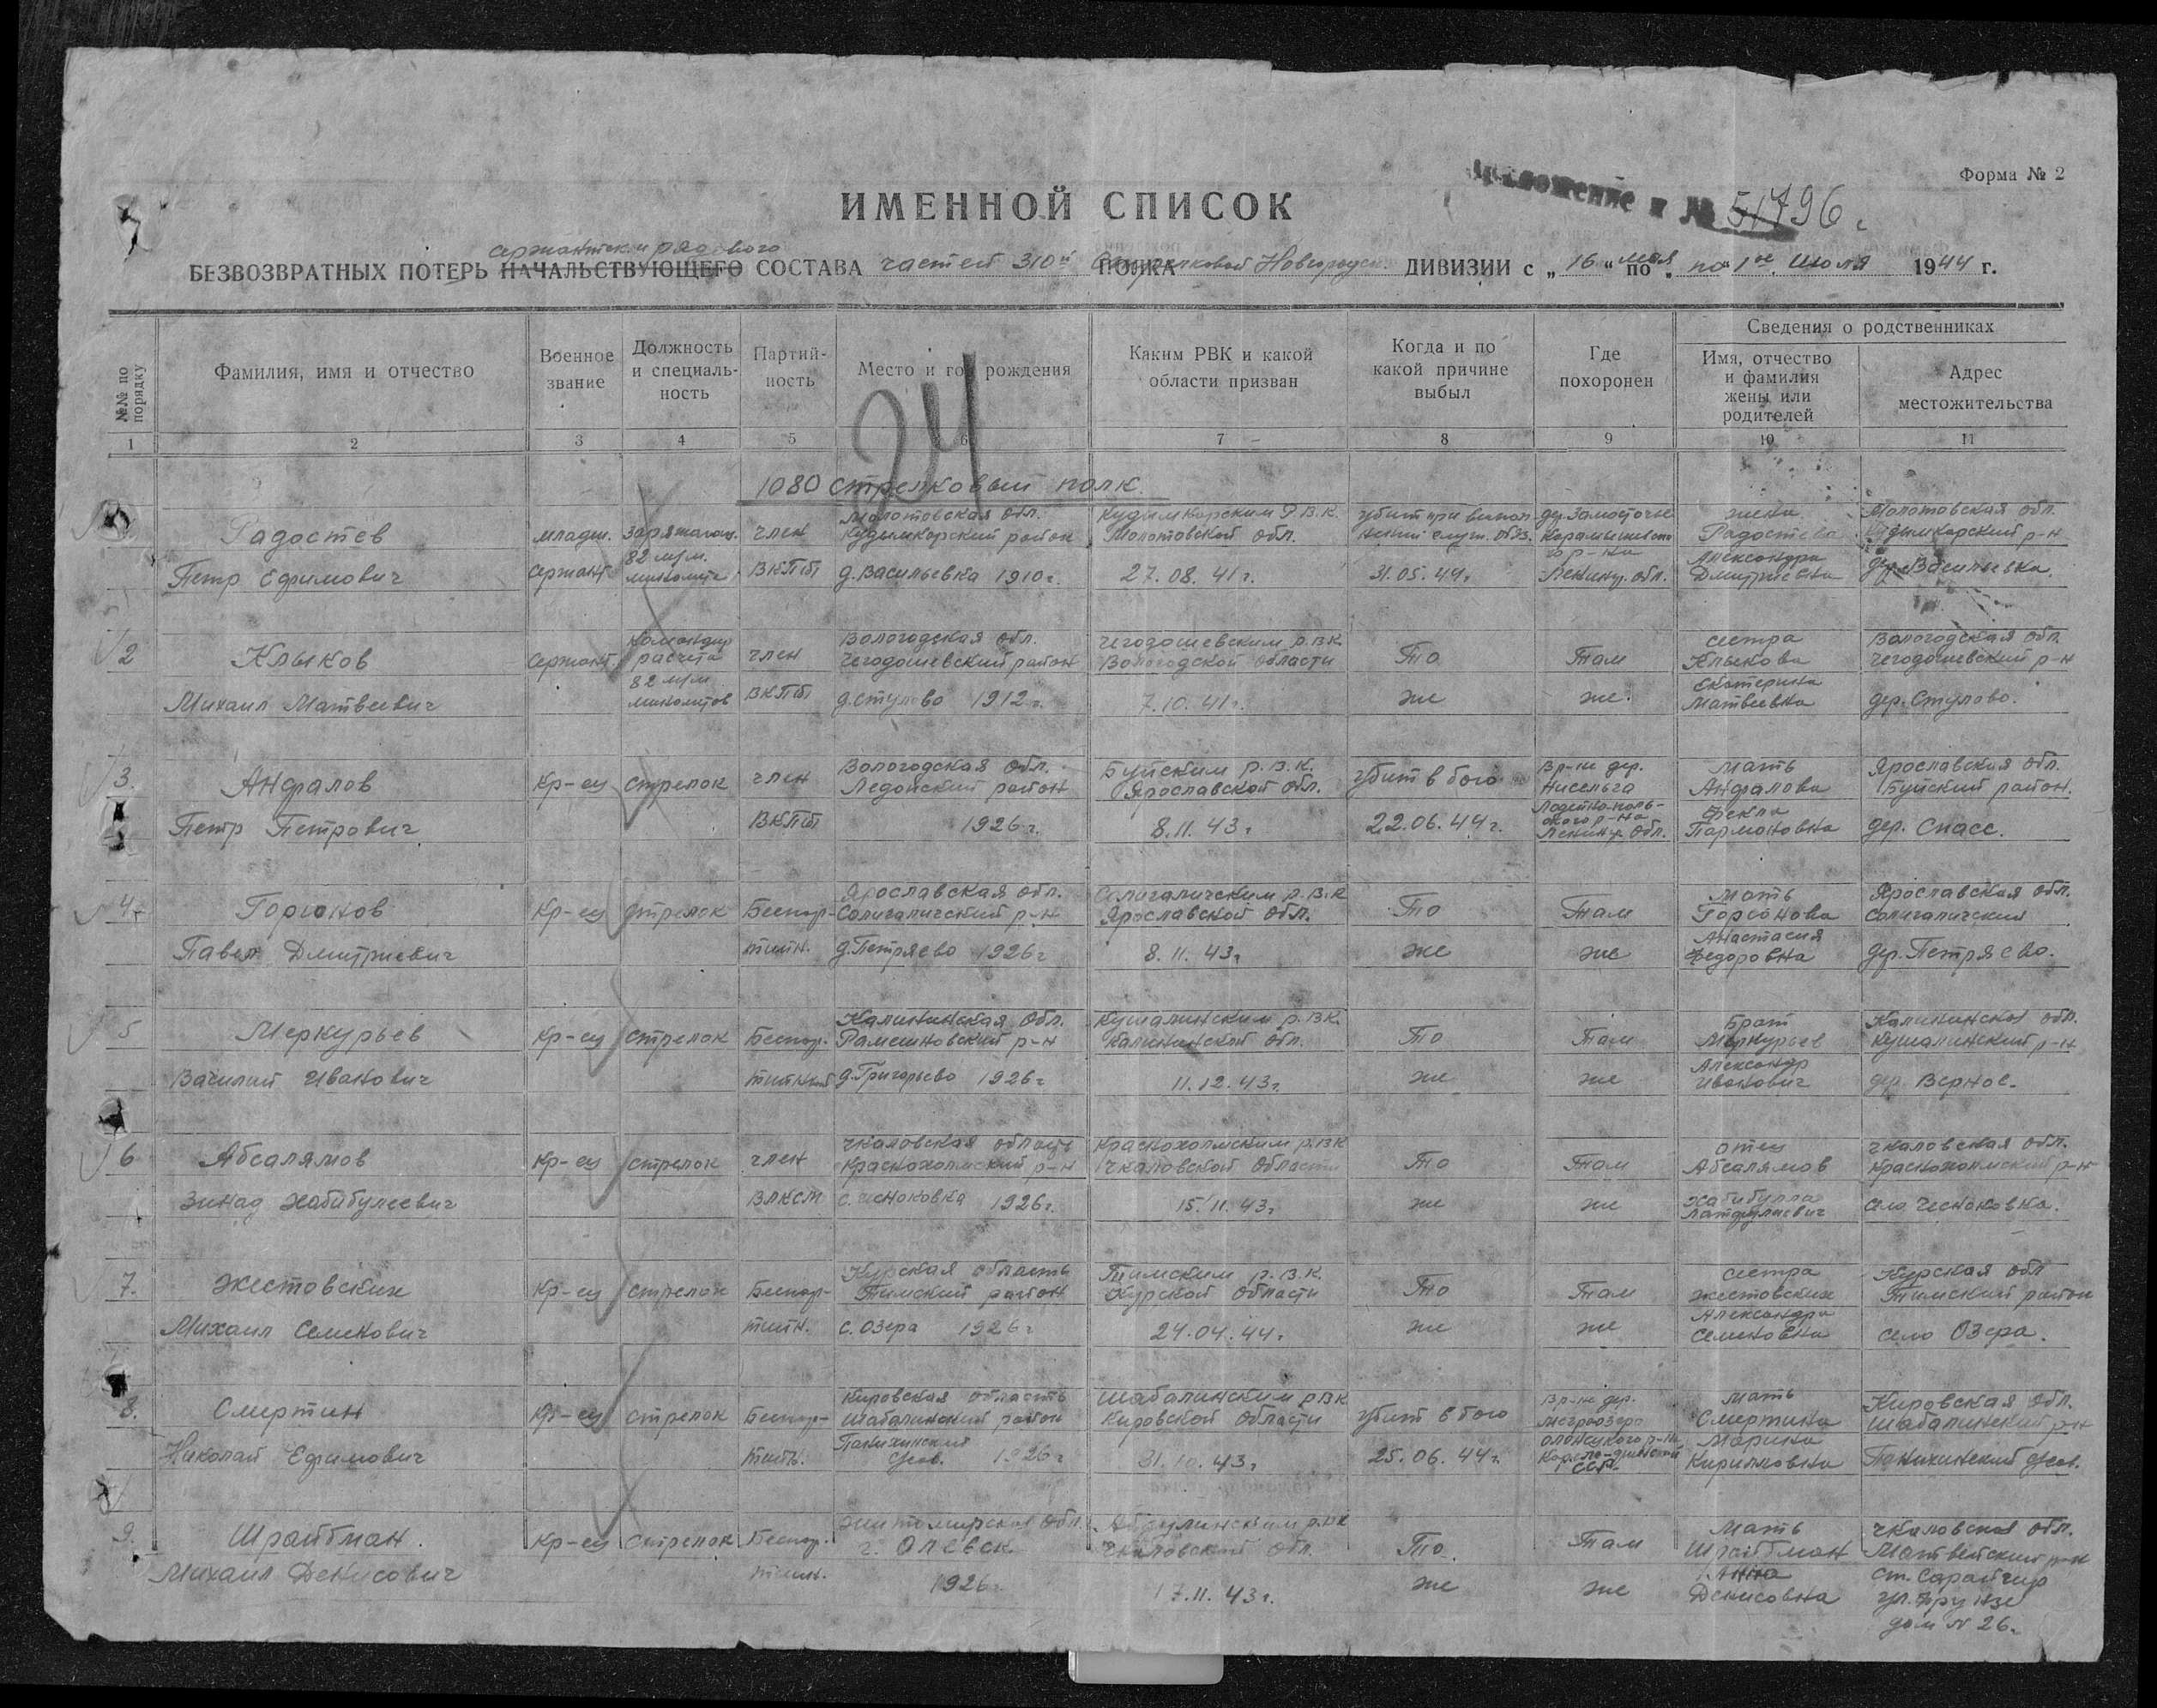 Форма № 2
Приложение к № 51796 с
ИМЕННОЙ СПИСОК
сержантск. и рядового
БЕЗВОЗВРАТНЫХ ПОТЕРЬ НАЧАЛЬСТВУЮЩЕГО СОСТАВА частей 310й ПОЛКА стрелковой Новгородск. ДИВИЗИИ с „16“ мая по „ по 1ое июля 1944 г.
№№ по порядку
Фамилия, имя и отчество
Военное звание
Должность и специальность
Партийность
Место и год рождения
Каким РВК и какой области призван
Когда и по какой причине выбыл
Где похоронен
Сведения о родственниках
Имя, отчество и фамилия жены или родителей
Адрес местожительства
1 2 3 4 5 6 7 8 9 10 11
24
1080 стрелковый полк.
Радостев Петр Ефимович
младш. сержант
82 м/м.
член ВКПб
Молотовская обл. Кудымкорский район д. Васильевка 1910 г.
Кудымкорским Р.В.К. Молотовской обл. 27.08.41 г.
убит при выпол нении служ. обяз. 31.05.44 г.
дер. Замосточье р-на Ленингр. обл.
жена Радостева Александра Дмитриевна
Молотовская обл. Кудымкорский р-н дер. Васильевка.
2 Клыков Михаил Матвеевич
сержант
командир расчета 82 м/м минометов
член ВКПб
Вологодская обл. Чегодошевский район д. Стулово 1912 г.
Чегодошевским р.вк. Вологодской области 7.10.41 г.
То же
Там же.
сестра Клыкова Екатерина Матвеевна
Вологодская обл. Чегодошевский р-н дер. Стулово.
3. Анфалов Петр Петрович
Кр-ец
стрелок
член ВКПб
Вологодская обл. район 1926 г.
Буйским р.в.к. Ярославской обл. 8.11.43 г.
убит в бою 22.06.44 г.
В р-не дер. Нисельга Лодейнопольского р-на Ленингр. обл.
мать Анфалова Фекла Пармоновна
Ярославская обл. Буйский район. дер. Спасс.
4. Горюнов Павел Дмитриевич
Кр-ец
стрелок
Беспар-тийн.
Ярославская обл. Солигаличский р-н д. Петряево 1926 г.
Солигаличским р.в.к Ярославской обл. 8.11.43 г.
То же
Там же
мать Анастасия Федоровна
Ярославская обл. Солигаличский дер. Петряево.
5 Меркурьев Василий Иванович
Кр-ец
стрелок
Беспар-тийный
Калининская обл. Рамешковский р-н д. Григорьево 1926 г.
Кушалинским р.вк. Калининской обл. 11.12.43 г.
То же
Там же
Брат Меркурьев Александр Иванович
Калининская обл. Кушалинский р-н дер. Верное.
6 Абсалямов Зинад Хабибулеевич
Кр-ец
стрелок
член ВЛКСМ
Чкаловская область Краснохолмский р-н 1926 г.
Краснохолмским р.вк Чкаловской области 15.11.43 г.
То же
Там же
отец Абсалямов Хабибулла
Чкаловская обл. Краснохолмский р-н село Чесноковка.
7. Жестовских Михаил Семенович
Кр-ец
стрелок
Беспар-тийн.
Курская область Тимский район с. Озера 1926 г.
Тимским р.в.к. Курской области 24.04.44 г.
То же
Там же
сестра Жестовских Александра Семеновна
Курская обл Тимский район село Озера.
8. Смертин Николай Ефимович
Кр-ец
стрелок
Беспар-тийн.
Кировская область Шабалинский район 1926 г.
Шабалинским рвк Кировской области 31.10.43 г.
убит в бою 25.06.44 г.
В р-не дер. Мегрозеро Олонецкого р-на Карело-Финской ССР.
мать Смертина Марина Кирилловна
Кировская обл. Шабалинский р-н
9. Шрайбман. Михаил Денисович
Кр-ец
стрелок
Беспар-тийн.
Житомирская обл. г. Олевск 1926 г.
Абдулинским р.вк Чкаловской обл. 17.11.43 г.
То же
Там же
Мать Шрайбман Анна Денисовна
Чкаловская обл. Матвеевский р-н ст. Сарайгир ул. Фрунзе дом № 26.